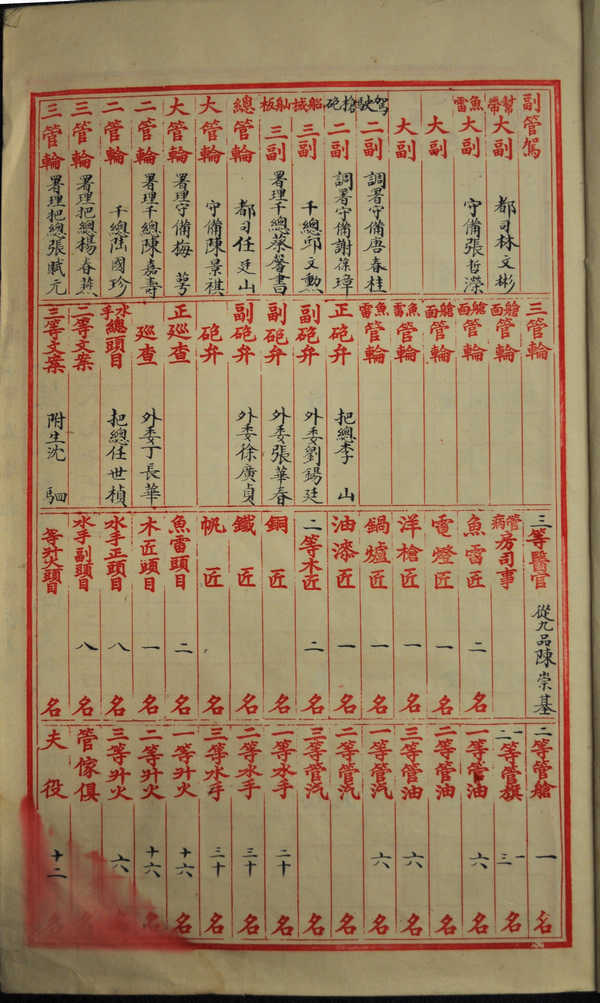 副管駕
幫帶大副 都司林文彬
魚雷大副 守備張哲濚
大副
大副
駕駛二副 調署守備唐春桂
槍砲二副 調署守備謝葆璋
船械三副 千總邱文勲
舢板三副 署理千總蔡馨書
總管輪 都司任廷山
大管輪 守備陳景祺
大管輪 署理守備梅萼
二管輪 署理千總陳嘉壽
二管輪 千總陸國珍
三管輪 署理把總楊春燕
三管輪 署理把總張斌元
三管輪
艙面管輪
艙面管輪
艙面管輪
魚雷管輪
魚雷管輪
正砲弁 把總李山
副砲弁 外委劉錫廷
副砲弁 外委張華春
副砲弁 外委徐廣貞
砲弁
正巡查
巡查 外委丁長華
水手總頭目 把總任世楨
二等文案
三等文案 附生沈駟
三等醫官 從九品陳崇基
管病房司事
魚雷匠 二名
電燈匠 一名
洋槍匠 一名
鍋爐匠 一名
油漆匠 一名
二等木匠 二名
銅匠 名
鐵匠 名
帆匠 名
魚雷頭目 二名
木匠頭目 一名
水手正頭目 八名
水手副頭目 八名
等升火頭目 名
二等管艙 一名
一二等管旗 一三名
一等管油 六名
二等管油 名
三等管油 六名
一等管汽 六名
二等管汽 名
三等管汽 名
一等水手 二十名
二等水手 三十名
三等水手 三十名
一等升火 十六名
二等升火 十六名
三等升火 六名
管傢俱 名
夫役 十二名